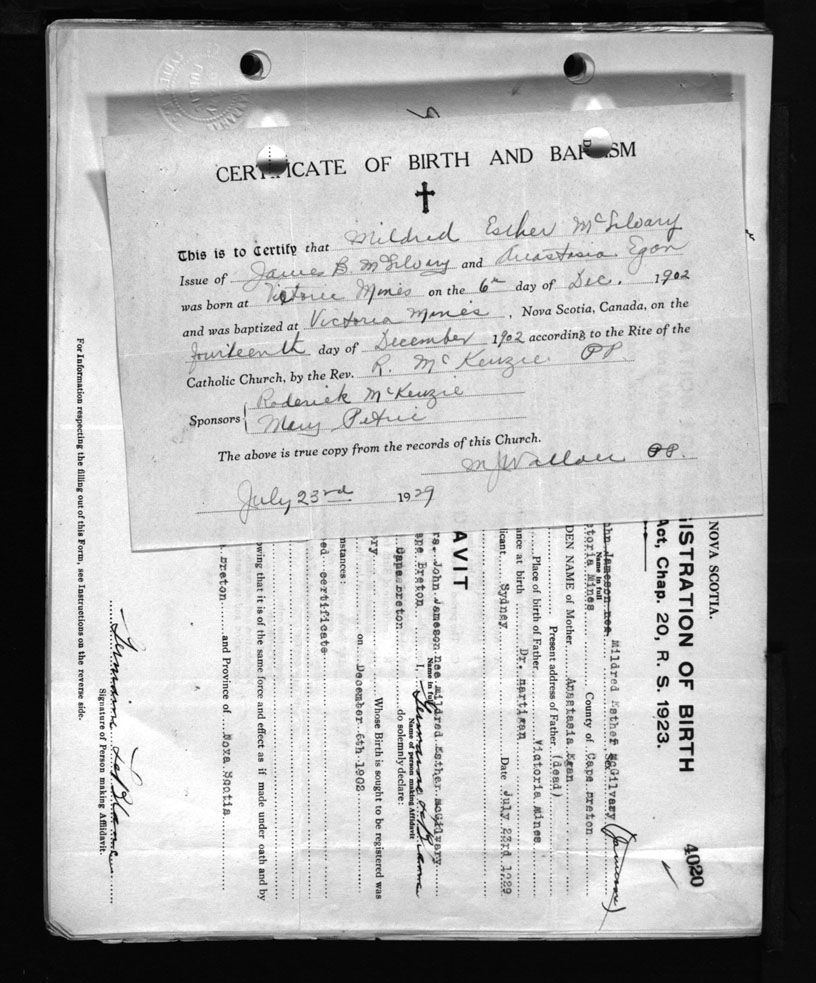 CERTIFICATE OF BIRTH AND BAPTISM
This is to Certify that Mildred Esther McGilvary
Issue of James B. McGilvary and Anastasia Egan
was born at Victoria Mines on the 6th day of Dec. 1902
and was baptized at Victoria Mines, Nova Scotia, Canada, on the
fourteenth day of December 1902 according to the Rite of the
Catholic Church, by the Rev. R. McKenzie PP.
Sponsors Roderick McKenzie
Mary Petrie
The above is true copy from the records of this Church.
M J Wallace PP.
July 23rd 1929
NOVA SCOTIA.
GISTRATION OF BIRTH
Act, Chap. 20, R. S. 1923.
4020
ohn Jameson nee Mildred Esther McGilvary (Jameson)
Name in full Sex
ctoria Mines County of Cape Breton
DEN NAME of Mother Anastasia Egan
Present address of Father (dead)
Place of birth of Father Victoria Mines
ance at birth Dr. Hartigan
licant Sydney Date July 23rd 1929
AVIT
rs. John Jameson nee Mildred Esther McGilvary
Name in full
ape Breton I,
Name of person making Affidavit
Cape Breton do solemnly declare:
ry Whose Birth is sought to be registered was
on December 6th 1902
nstances:
ed certificate
owing that it is of the same force and effect as if made under oath and by
Breton and Province of Nova Scotia
Signature of Person making Affidavit.
For Information respecting the filling out of this Form, see Instructions on the reverse side.